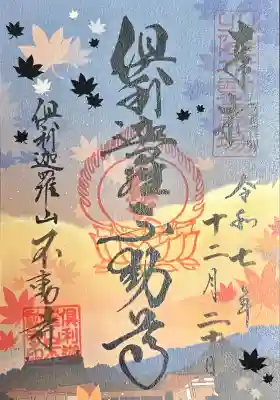 奉拝
令和七年
十二月二十日
倶利迦羅不動尊
倶利迦羅山不動寺